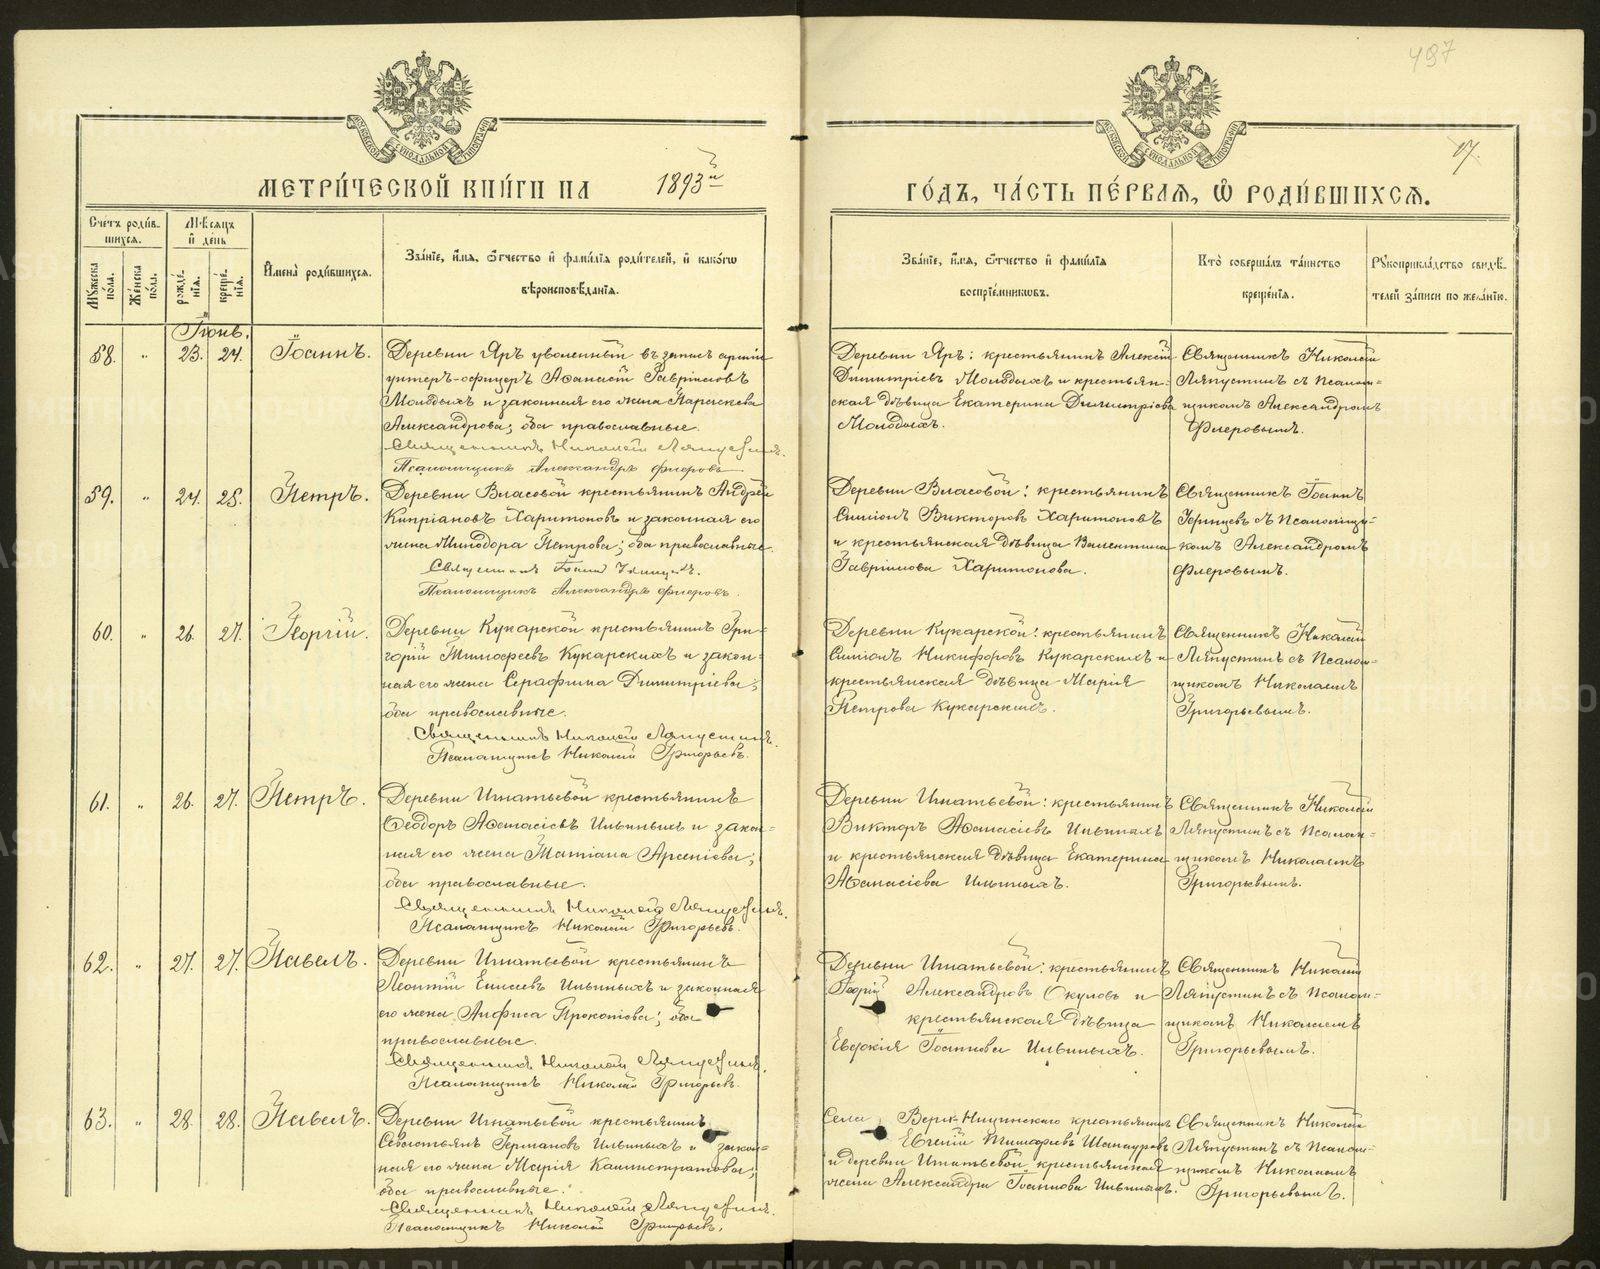 497
17.
МЕТРИ́ЧЕСКОЙ КНИ́ГИ НА 1893й
ГО́ДЪ, ЧА́СТЬ ПЕ́РВАЯ, Ѽ РОДИ́ВШИХСЯ.
Сче́тъ роди́в-
шихся.
Мѣ́сяцъ
и́ де́нь
Му́жеска по́ла.
Же́нска по́ла.
рожде́нїя.
креще́нїя.
И́мена̀ роди́вшихся.
Зва́нїе, и́мя, ѻ҆́тчество и́ фами́лїя роди́телей, и́ како́гѡ
вѣроисповѣ́данїя.
Зва́нїе, и́мя, ѻ҆́тчество и́ фами́лїя
воспрїе́мниковъ.
Кто̀ соверша́лъ та́инство
креще́нїя.
Рꙋкоприкла́дство свидѣ́-
телей за́писи по жела́нїю.
Іюнь.
58. " 23. 24. Іоаннъ.
Деревни Яръ уволенный въ запасъ арміи
унтеръ-офицеръ Аѳанасій Гавріиловъ
Молодыхъ и законная его жена Параскева
Александрова; оба православные.
Священникъ Николай Ляпустинъ.
Псаломщикъ Александръ Флеровъ
Деревни Яръ: крестьянинъ Алексѣй
Димитріевъ Молодыхъ и крестьян-
ская дѣвица Екатерина Димитріева
Молодыхъ.
Священникъ Николай
Ляпустинъ съ псалом-
щикомъ Александромъ
Флеровымъ.
59. " 24. 25. Петръ.
Деревни Власовой крестьянинъ Андрей
Кипріановъ Харитоновъ и законная его
жена Минодора Петрова; оба православные.
Священникъ Іоаннъ
Псаломщикъ Александръ Флеровъ.
Деревни Власовой: крестьянинъ
Симіонъ Викторовъ Харитоновъ
и крестьянская дѣвица Валентина
Гавріилова Харитонова.
Священникъ Іоаннъ
съ псаломщи-
комъ Александромъ
Флеровымъ.
60. " 26. 27. Георгій.
Деревни Кукарской крестьянинъ Гри-
горій Тимоѳеевъ Кукарскихъ и закон-
ная его жена Серафима Димитріева;
оба православные.
Священникъ Николай Ляпустинъ.
Псаломщикъ Николай Григорьевъ.
Деревни Кукарской: крестьянинъ
Симіонъ Никифоровъ Кукарскихъ и
крестьянская дѣвица Марія
Петрова Кукарскихъ.
Священникъ Николай
Ляпустинъ съ псалом-
щикомъ Николаемъ
Григорьевымъ.
61. " 26. 27. Петръ.
Деревни Игнатьевой крестьянинъ
Ѳеодоръ Аѳанасіевъ Ильиныхъ и закон-
ная его жена Татіана Арсеніева;
оба православные.
Священникъ Николай Ляпустинъ.
Псаломщикъ Николай Григорьевъ.
Деревни Игнатьевой: крестьянинъ
Викторъ Аѳанасіевъ Ильиныхъ
и крестьянская дѣвица Екатерина
Аѳанасіева Ильиныхъ.
Священникъ Николай
Ляпустинъ съ псалом-
щикомъ Николаемъ
Григорьевымъ.
62. " 27. 27. Павелъ.
Деревни Игнатьевой крестьянинъ
Леонтій Елисеевъ Ильиныхъ и законная
его жена Анфиса Прокопіева; оба
православные.
Священникъ Николай Ляпустинъ.
Псаломщикъ Николай Григорьевъ.
Деревни Игнатьевой: крестьянинъ
Георгій Александровъ Окуловъ и
крестьянская дѣвица
Евдокія Іоаннова Ильиныхъ.
Священникъ Николай
Ляпустинъ съ псалом-
щикомъ Николаемъ
Григорьевымъ.
63. " 28. 28. Павелъ.
Деревни Игнатьевой крестьянинъ
Севастьянъ Германовъ Ильиныхъ и закон-
ная его жена Марія Каллистратова;
оба православные.
Священникъ Николай Ляпустинъ.
Псаломщикъ Николай Григорьевъ.
Села Верх-Ницинскаго крестьянинъ
Евгеній Тимоѳеевъ Шапауровъ
и деревни Игнатьевой крестьянская
жена Александра Іоаннова Ильиныхъ.
Священникъ Николай
Ляпустинъ съ псалом-
щикомъ Николаемъ
Григорьевымъ.